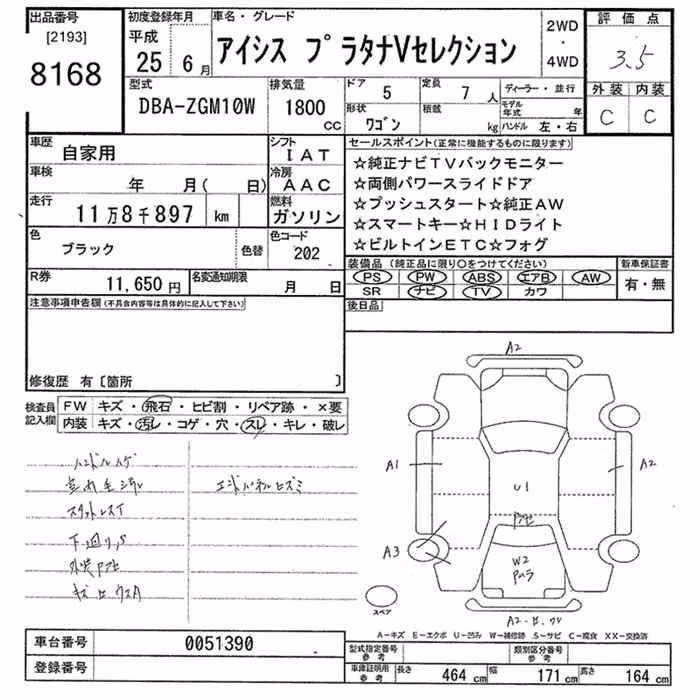 出品番号 初度登録年月 車名・グレード 評価点
[2193] 平成 2WD
8168 25 6月 アイシス プラタナVセレクション ・ 3.5
4WD
型式 排気量 ドア 5 定員 7人 ディーラー・並行 外装 内装
DBA-ZGM10W 1800 cc 形状 ワゴン 積載 kg モデル年式 年 C C
ハンドル 左・右
車歴 自家用 シフト IAT セールスポイント(正常に機能するものに限ります)
車検 年 月( 日) 冷房 AAC ☆純正ナビTVバックモニター
☆両側パワースライドドア
走行 11万8千897 km 燃料 ガソリン ☆プッシュスタート☆純正AW
☆スマートキー☆HIDライト
色 ブラック 色替 色コード 202 ☆ビルトインETC☆フォグ
装備品(純正品に限り○をつけてください) 新車保証書
R券 11,650円 名変通知期限 月 日 PS PW ABS エアB AW 有・無
SR ナビ TV カワ
注意事項申告欄(不具合内容等は具体的に記入して下さい) 後日品
修復歴 有〔箇所 〕
検査員記入欄 FW キズ・飛石・ヒビ割・リペア跡・×要
内装 キズ・汚レ・コゲ・穴・スレ・キレ・破レ
ハンドルハゲ
エンドパネルヒズミ
下回りS
A2
A1 A2
U1
A3
W2
スペア
A-キズ E-エクボ U-凹み W-補修跡 S-サビ C-腐食 XX-交換済
車台番号 0051390 型式指定番号参考 類別区分番号参考
登録番号 車庫証明用参考 長さ 464cm 幅 171cm 高さ 164cm